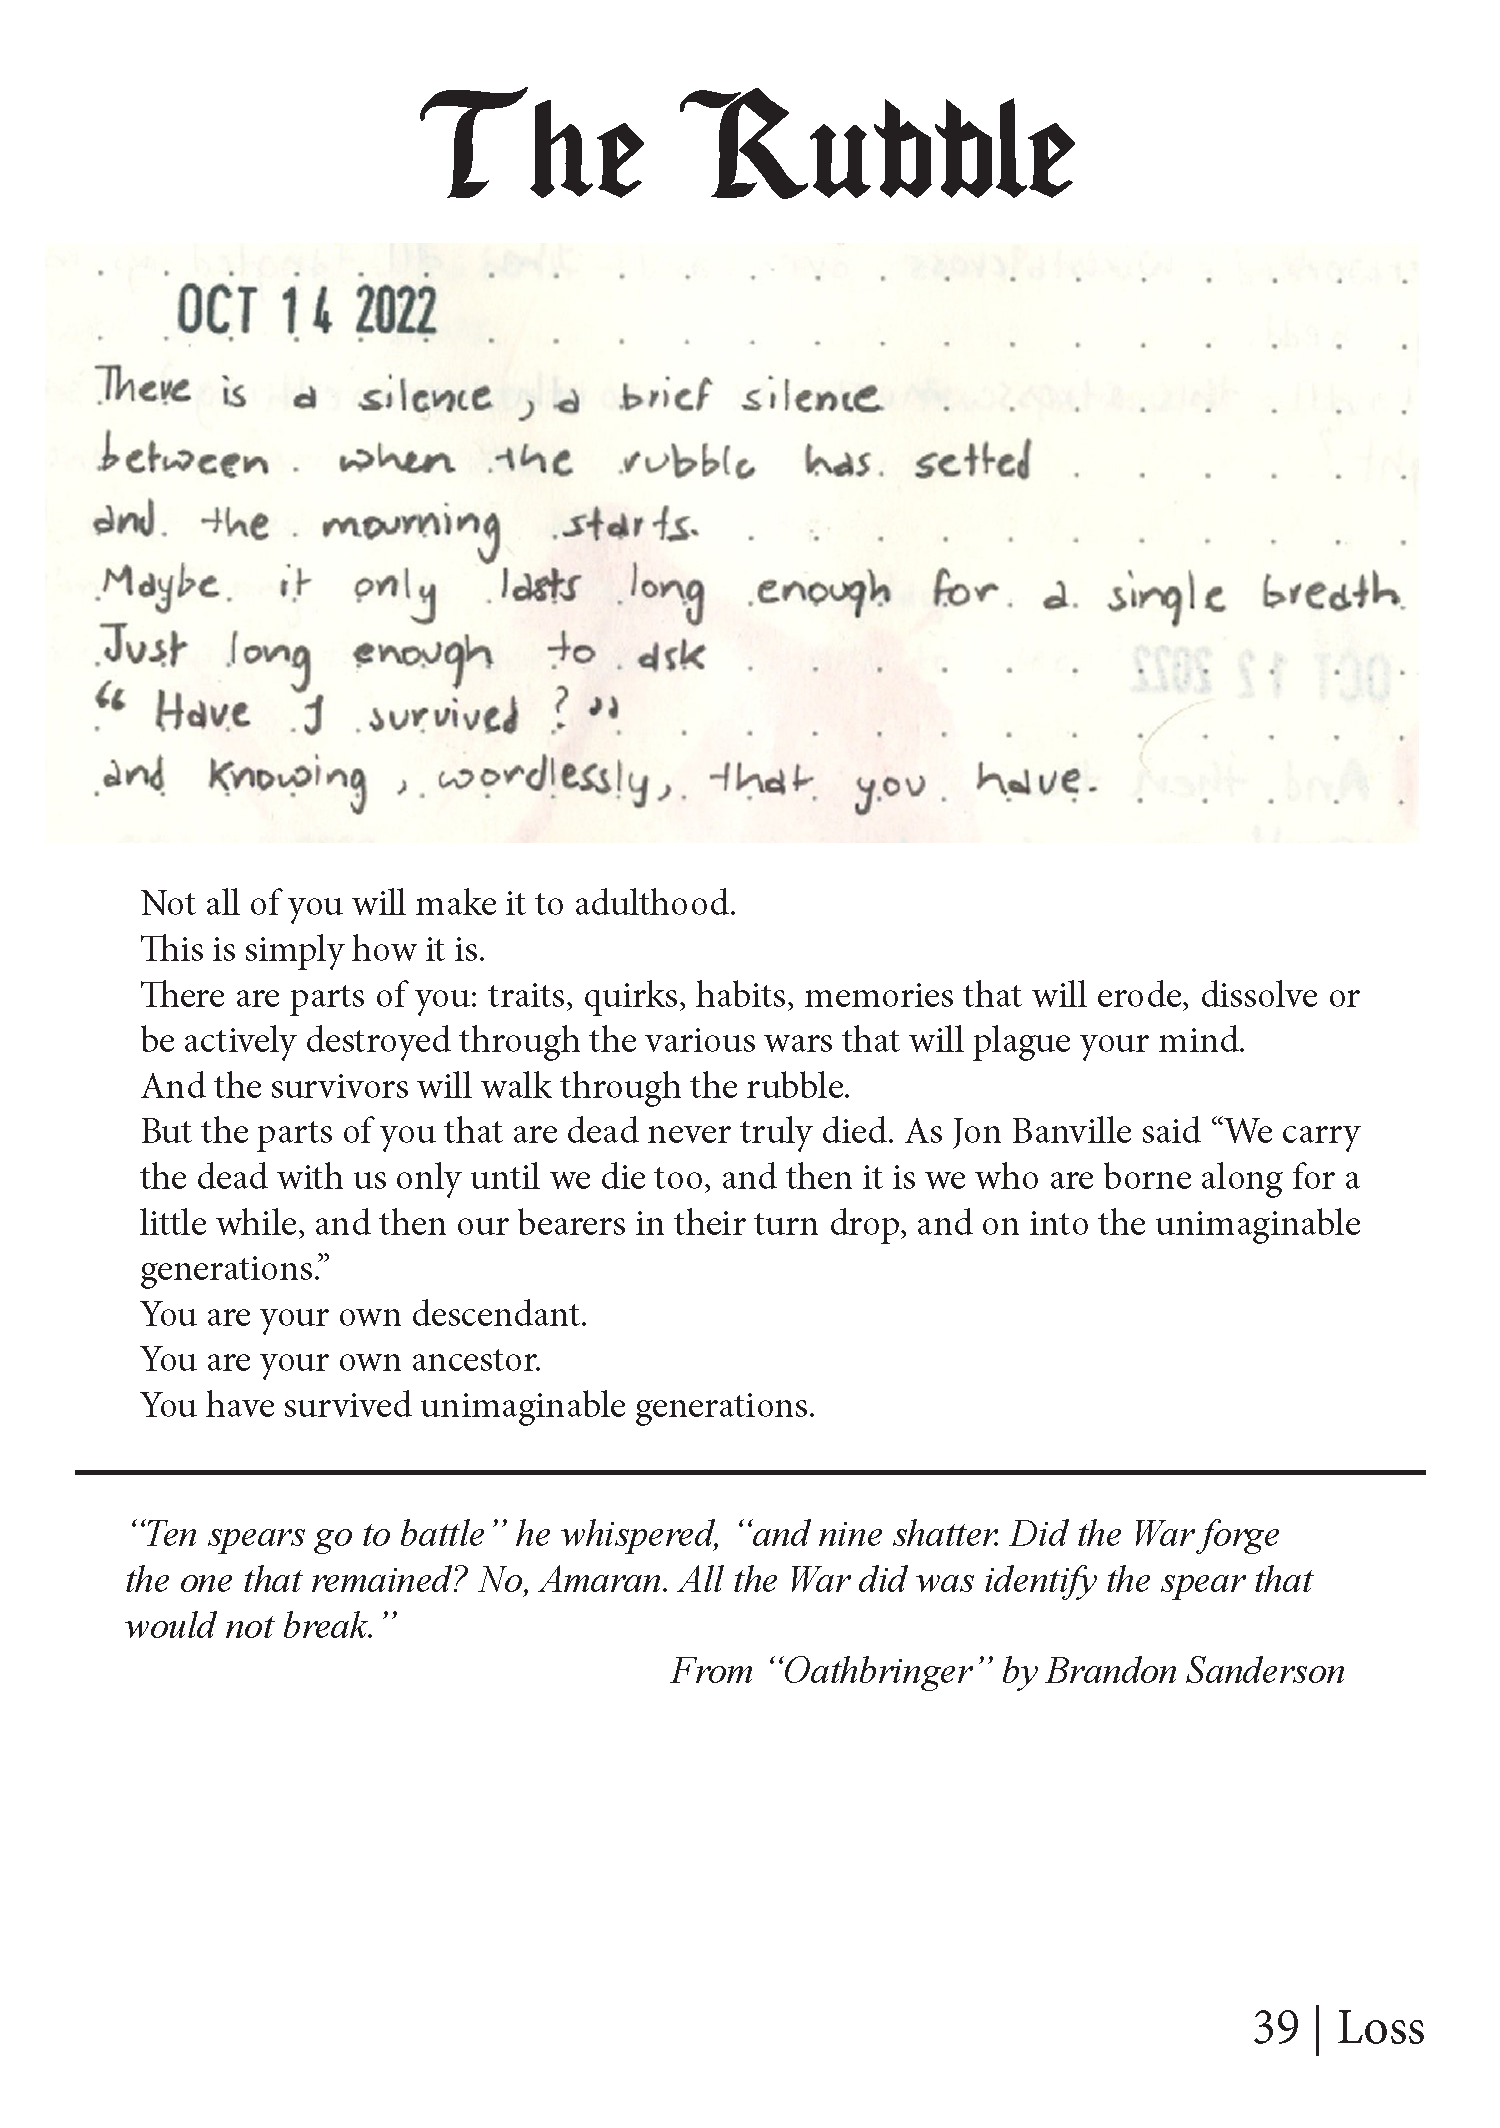 The Rubble
OCT 14 2022
There is a silence, a brief silence
between when the rubble has setted
and the mourning starts.
Maybe it only lasts long enough for a single breath
Just long enough to ask
OCT 12 2022
“Have I survived?”
and knowing, wordlessly, that you have.
And then
Not all of you will make it to adulthood.
This is simply how it is.
There are parts of you: traits, quirks, habits, memories that will erode, dissolve or
be actively destroyed through the various wars that will plague your mind.
And the survivors will walk through the rubble.
But the parts of you that are dead never truly died. As Jon Banville said “We carry
the dead with us only until we die too, and then it is we who are borne along for a
little while, and then our bearers in their turn drop, and on into the unimaginable
generations.”
You are your own descendant.
You are your own ancestor.
You have survived unimaginable generations.
“Ten spears go to battle” he whispered, “and nine shatter. Did the War forge
the one that remained? No, Amaran. All the War did was identify the spear that
would not break.”
From “Oathbringer” by Brandon Sanderson
39 | Loss